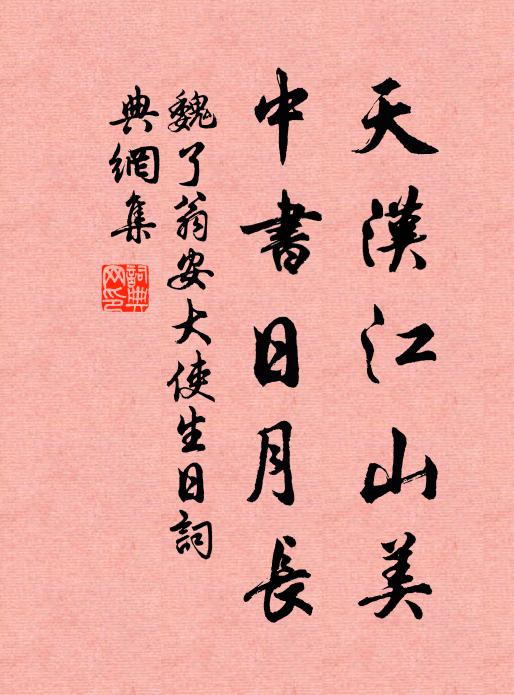 天漢江山美
中書日月長
魏了翁安大使生日詞
典網集
詞典網印